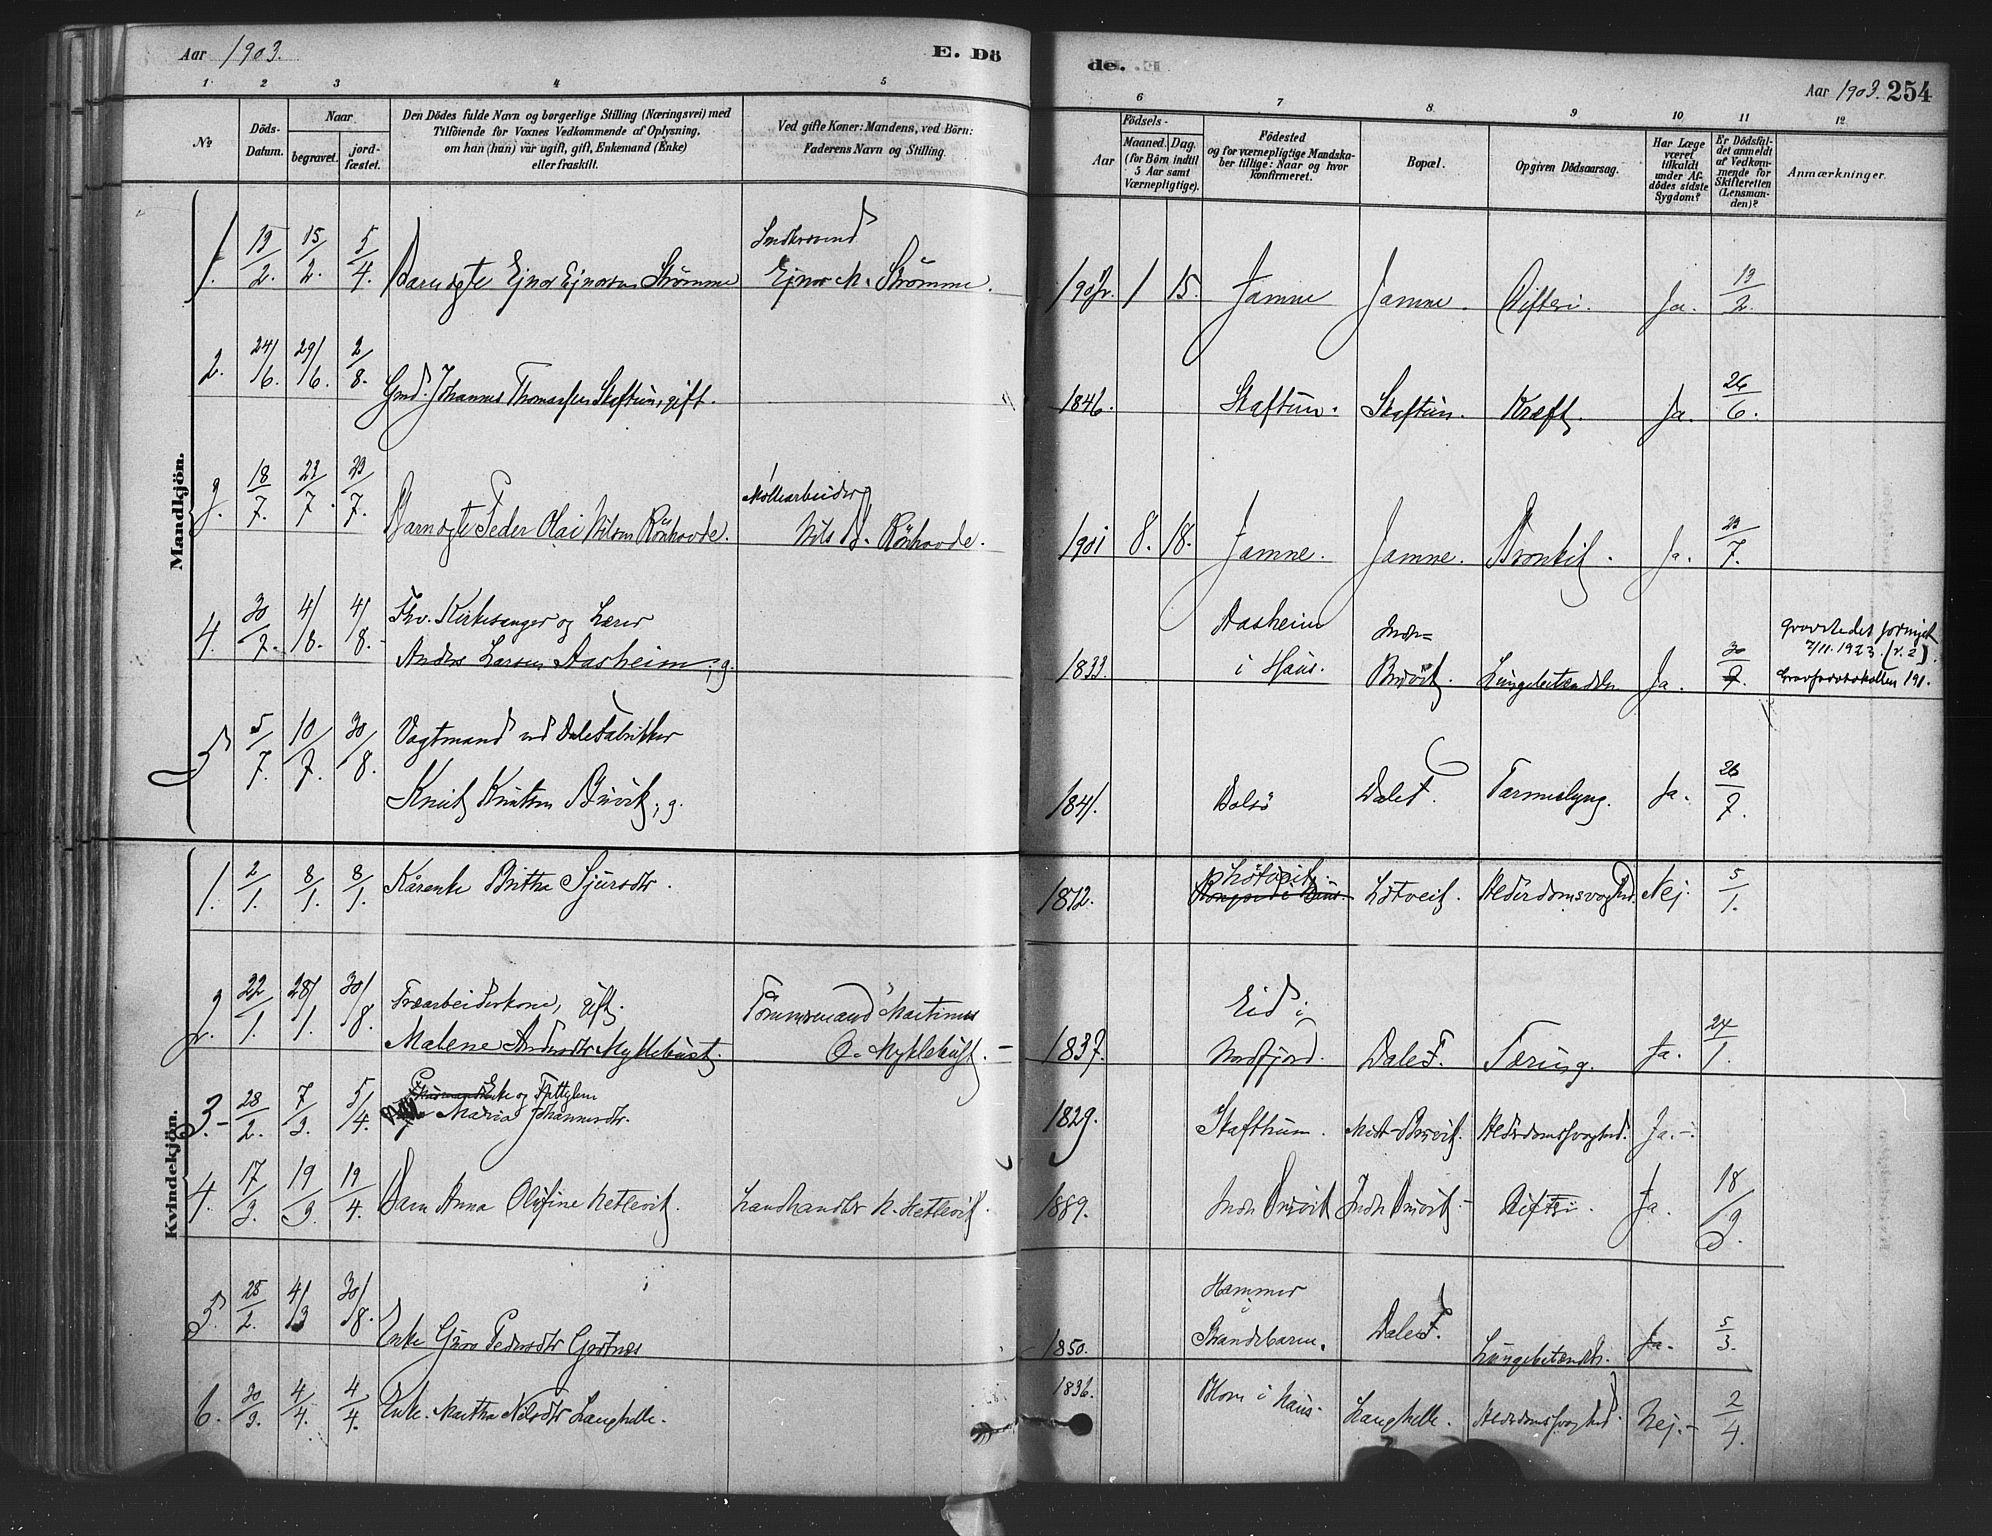 Aar 1903.
E. Dö
de.
Aar 1903. 254
1.
2
3
4
5
6
7
8.
9
10
11
12
№
Döds-
Datum.
Naar
begravet.
jord-
fæstet.
Den Dödes fulde Navn og borgerlige Stilling (Næringsvei) med
Tilföiende for Voxnes Vedkommende af Oplysning,
om han (hun) var ugift, gift, Enkemand (Enke)
eller fraskilt.
Ved gifte Koner: Mandens, ved Börn:
Faderens Navn og Stilling.
Födsels-
Aar
Maaned. Dag.
(for Börn indtil
5 Aar samt
Værnepligtige).
Födested
og for værnepligtige Mandska-
ber tillige: Naar og hvor
konfirmeret.
Bopæl.
Opgiven Dödsaarsag.
Har Læge
været
tilkaldt
under Af-
dödes sidste
Sygdom?
Er Dödsfal-
det anmeldt
af Vedkom-
mende for
Skifteretten
(Lensman-
den)?
Anmærkninger.
Mandkjön.
1. 13/2. 15/2. 5/4. Barn ægte Ejnor Ejnorsen Strømme
Ejnor M. Strømme.
1 15. Jamne Jamne. Difteri. Ja. 13/2.
2. 24/6. 29/6. 2/8. Gmd. Johannes Thomassen Skaftun, gift.
1846. Skaftun. Skaftun. Kræft. Ja. 26/6.
3. 18/7. 23/7. 23/7. Barn ægte Peder Olai Nilsen Rönhovde.
Möllearbeider
Nils P. Rönhovde.
1901 8. 18. Jamne. Jamne. Bronkit. Ja. 23/7.
4. 30/7. 4/8. 4/8. Fhv. Kirkesanger og Lærer
Anders Larsen Aasheim, g.
1833. Aasheim
i Haus. Indre
Bruvik. Lungebetændelse Ja. 30/7.
Gravstedet fornyet
7/11. 1923. (r. 2).
Gravprotokollen 191.
5 5/7. 10/7. 30/8. Vagtmand ved Dale Fabrikker
Knut Knutsen Bruvik, g.
1841. Bolsö Dale F. Tarmeslyng. Ja. 26/7.
Kvindekjön.
1. 2/1. 8/1. 8/1. Kårenke Britha Sjursdtr.
1812. Lötveit. Lötveit. Alderdomssvaghed. Nej. 5/1.
2. 22/1. 28/1. 30/8. Træarbeiderkone, gift.
Malene Andersdtr Myklebust.
Tömmermand Martinus
O. Myklebust.
1837. Eid i
Nordfjord. Dale F. Tæring. Ja. 24/1.
3. 28/2. 7/3. 5/4. Enke og Fattiglem
Maria Johannesdtr.
1829. Skafthun. Midt-Bruvik. Alderdomssvaghed. Ja.
4. 17/3. 19/3. 19/4. Barn Anna Olufine Hetlevik.
Landhandler N. Hetlevik.
1889. Indre Bruvik Indre Bruvik. Difteri. Ja. 18/3.
5. 28/2. 4/3 30/8. Enke Guro Pedersdtr Grötnæs
1850. Hammer
Strandebarm. Dale F. Lungebetændelse. Ja. 5/3.
6. 30/3. 4/4. 4/4. Enke. Martha Nilsdtr Langhelle.
1836. Horn i Haus. Langhelle. Alderdomssvaghed. Nej. 2/4.